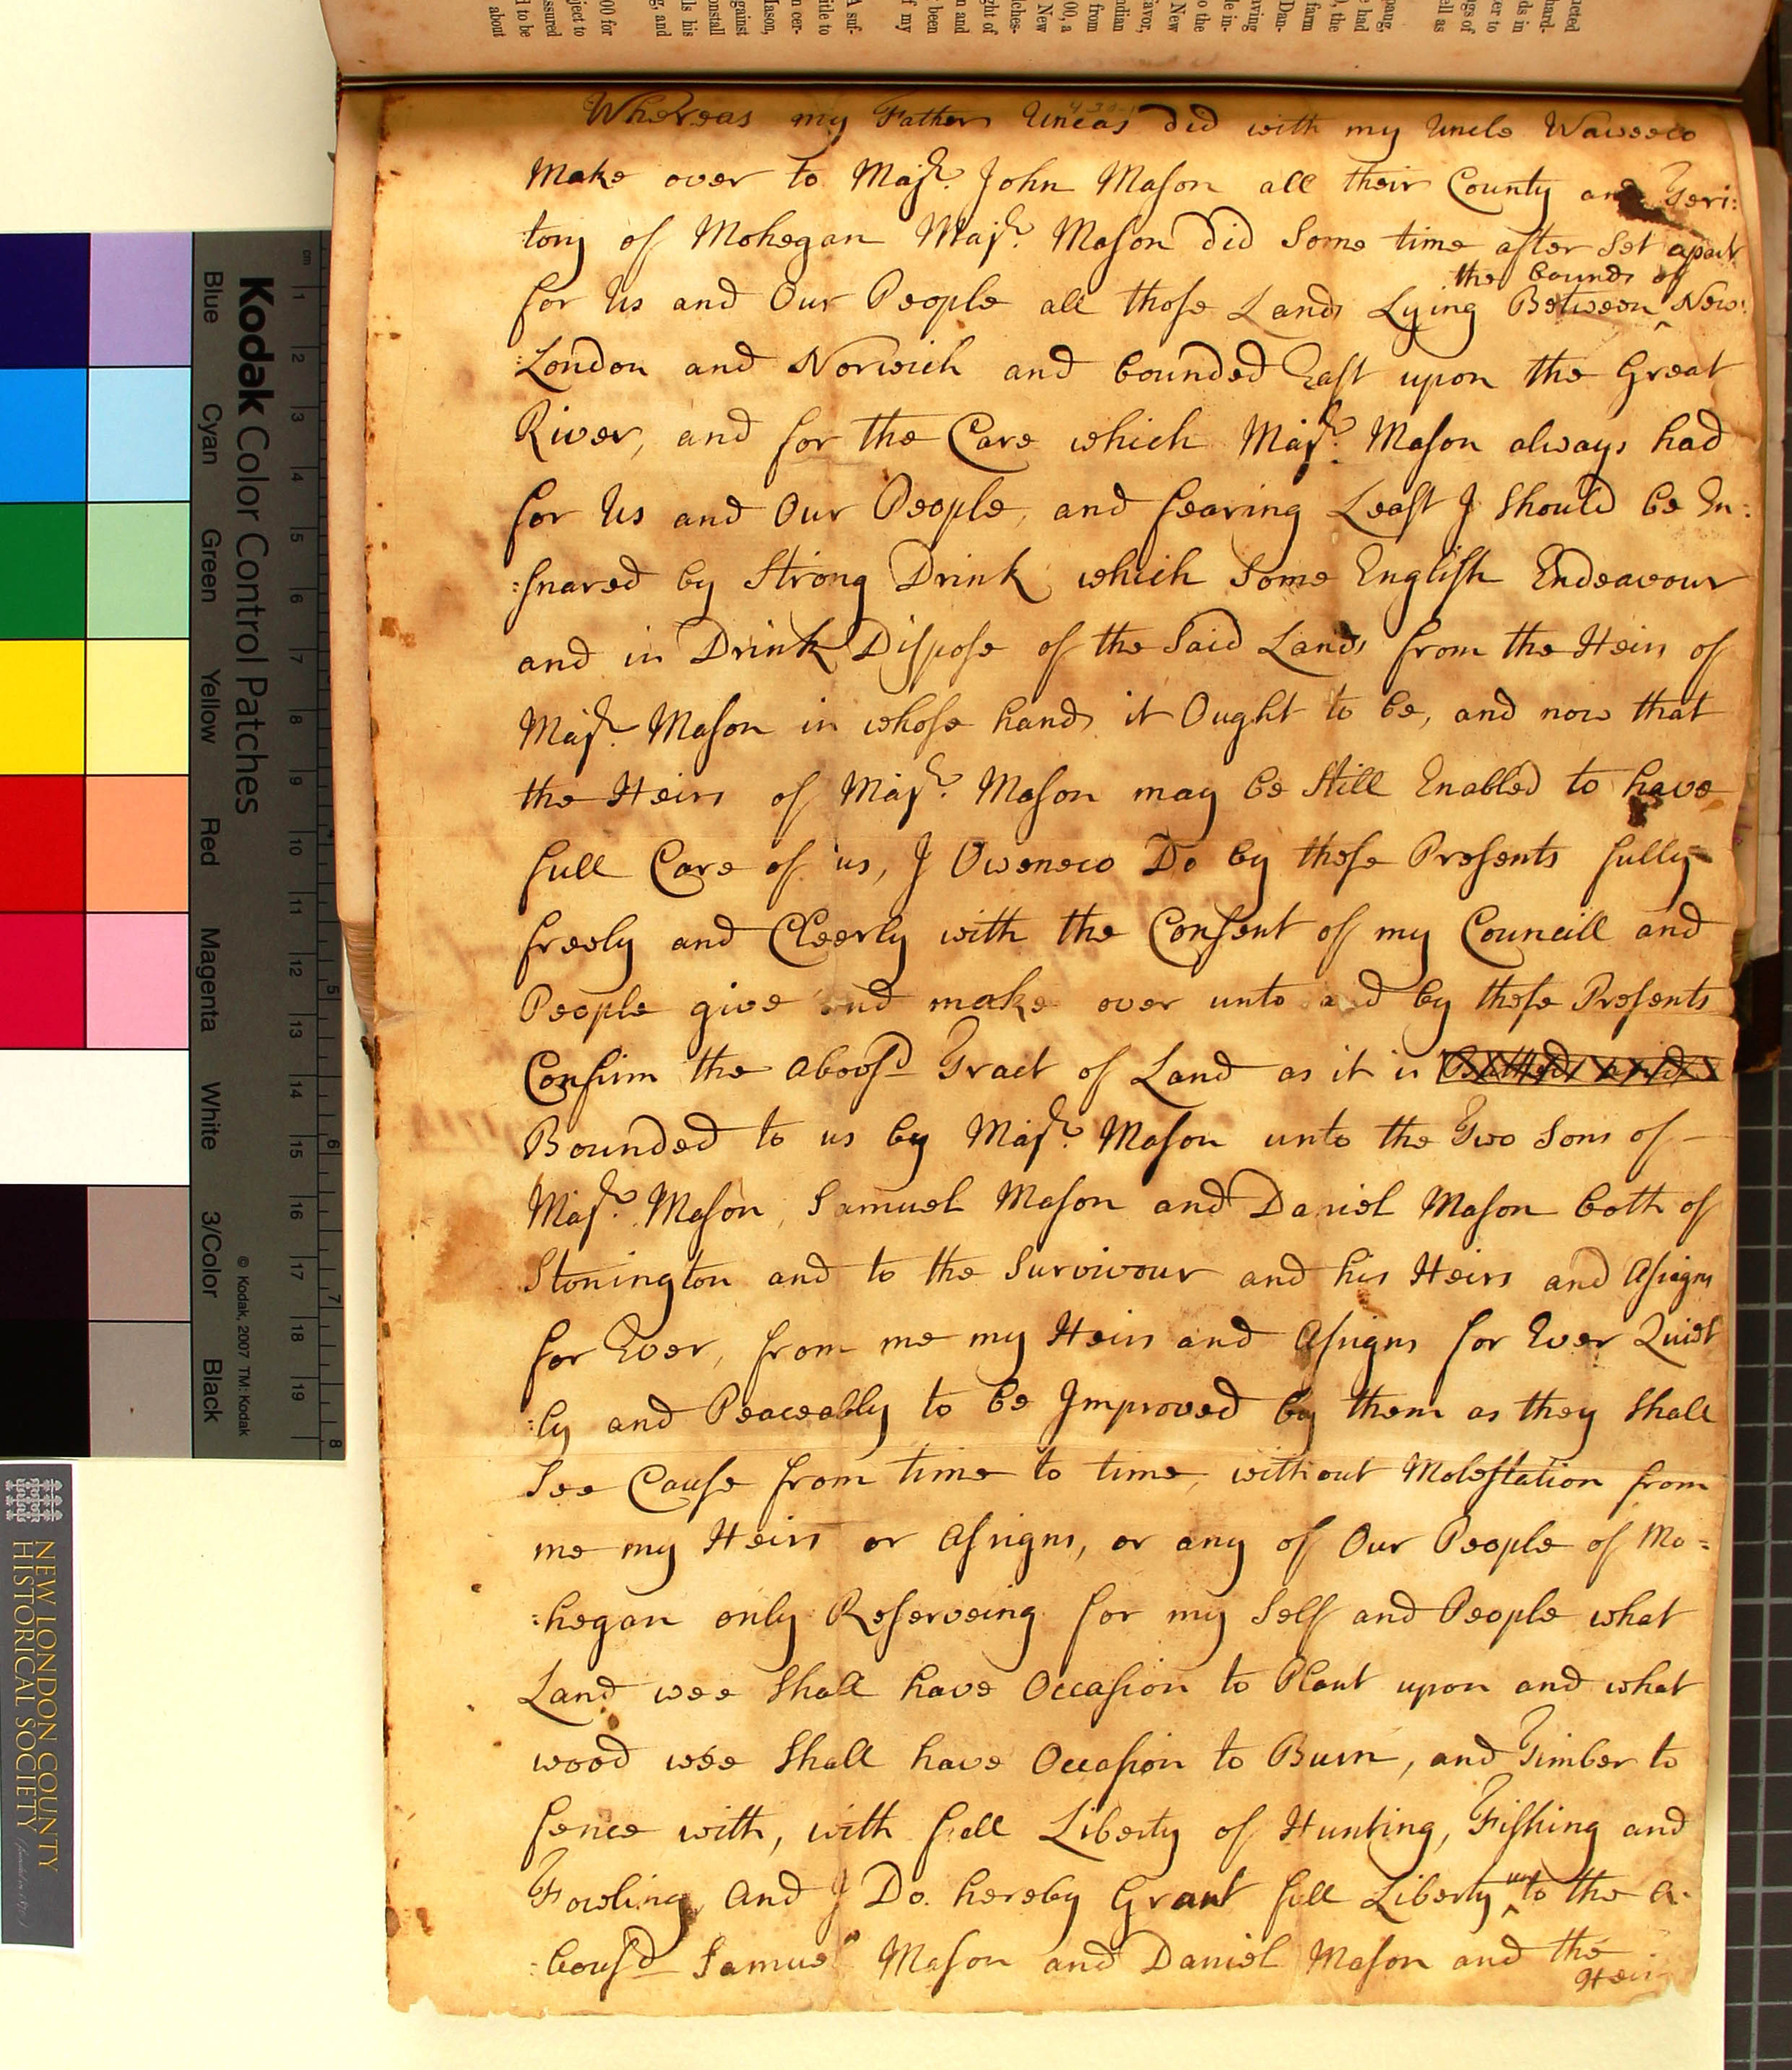 Whereas my Father Uncas did with my Uncle Waweeco
Make over to Majr. John Mason all their County and Teri:
tory of Mohegan Majr. Mason did Some time after Set apart
for Us and Our People all those Lands Lying Between ^ the bounds of New:
:London and Norwich and bounded East upon the Great
River, and for the Care which Majr. Mason always had
for Us and Our People, and fearing Least I Should be En:
:snared by Strong Drink which Some English Endeavour
and in Drink Dispose of the Said Lands from the Heirs of
Majr. Mason in whose hands it Ought to be, and now that
the Heirs of Majr. Mason may be Still Enabled to have
full Care of us, I Oweneco Do by these Presents fully
freely and Cleerly with the Consent of my Councill and
People give and make over unto and by these Presents
Confirm the abovesd Tract of Land as it is
Bounded to us by Majr. Mason unto the Two Sons of –
Majr. Mason, Samuel Mason and Daniel Mason both of
Stonington and to the Survivour and his Heirs and Asigns
for Ever, from me my Heirs and Asigns for Ever Quiet
:ly and Peaceably to be Improved by them as they Shall
See Cause from time to time, without Molestation from
me my Heirs or Asigns, or any of Our People of Mo=
:hegan only Reserveing for my Self and People what
Land wee Shall have Occasion to Plant upon and what
wood wee Shall have Occasion to Burn, and Timber to
fence with, with full Liberty of Hunting, Fishing and
Fowling, And I Do hereby Grant full Liberty ^ un to the a:
:bovesd Samuel Mason and Daniel Mason and the
Heirs
Kodak Color Control Patches
Blue Cyan Green Yellow Red Magenta White 3/Color Black
© Kodak, 2007 TM: Kodak
cm 1 2 3 4 5 6 7 8 9 10 11 12 13 14 15 16 17 18 19
5 6 7 8
NEW LONDON COUNTY
HISTORICAL SOCIETY